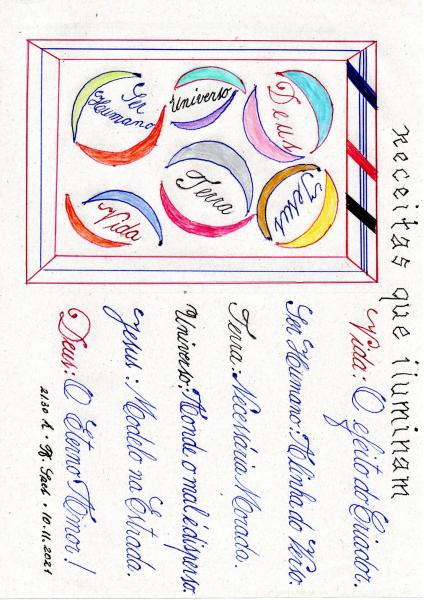 Receitas que iluminam
Ser Humano
Universo
Deus
Terra
Jesus
Vida
Vida: O efeito do Criador.
Ser Humano: A linha do Verso.
Terra: Necessária Morada.
Universo: Aonde o mal é disperso.
Jesus: Modelo na Estrada.
Deus: O Eterno Amor!
2130 A · 10.11.2021